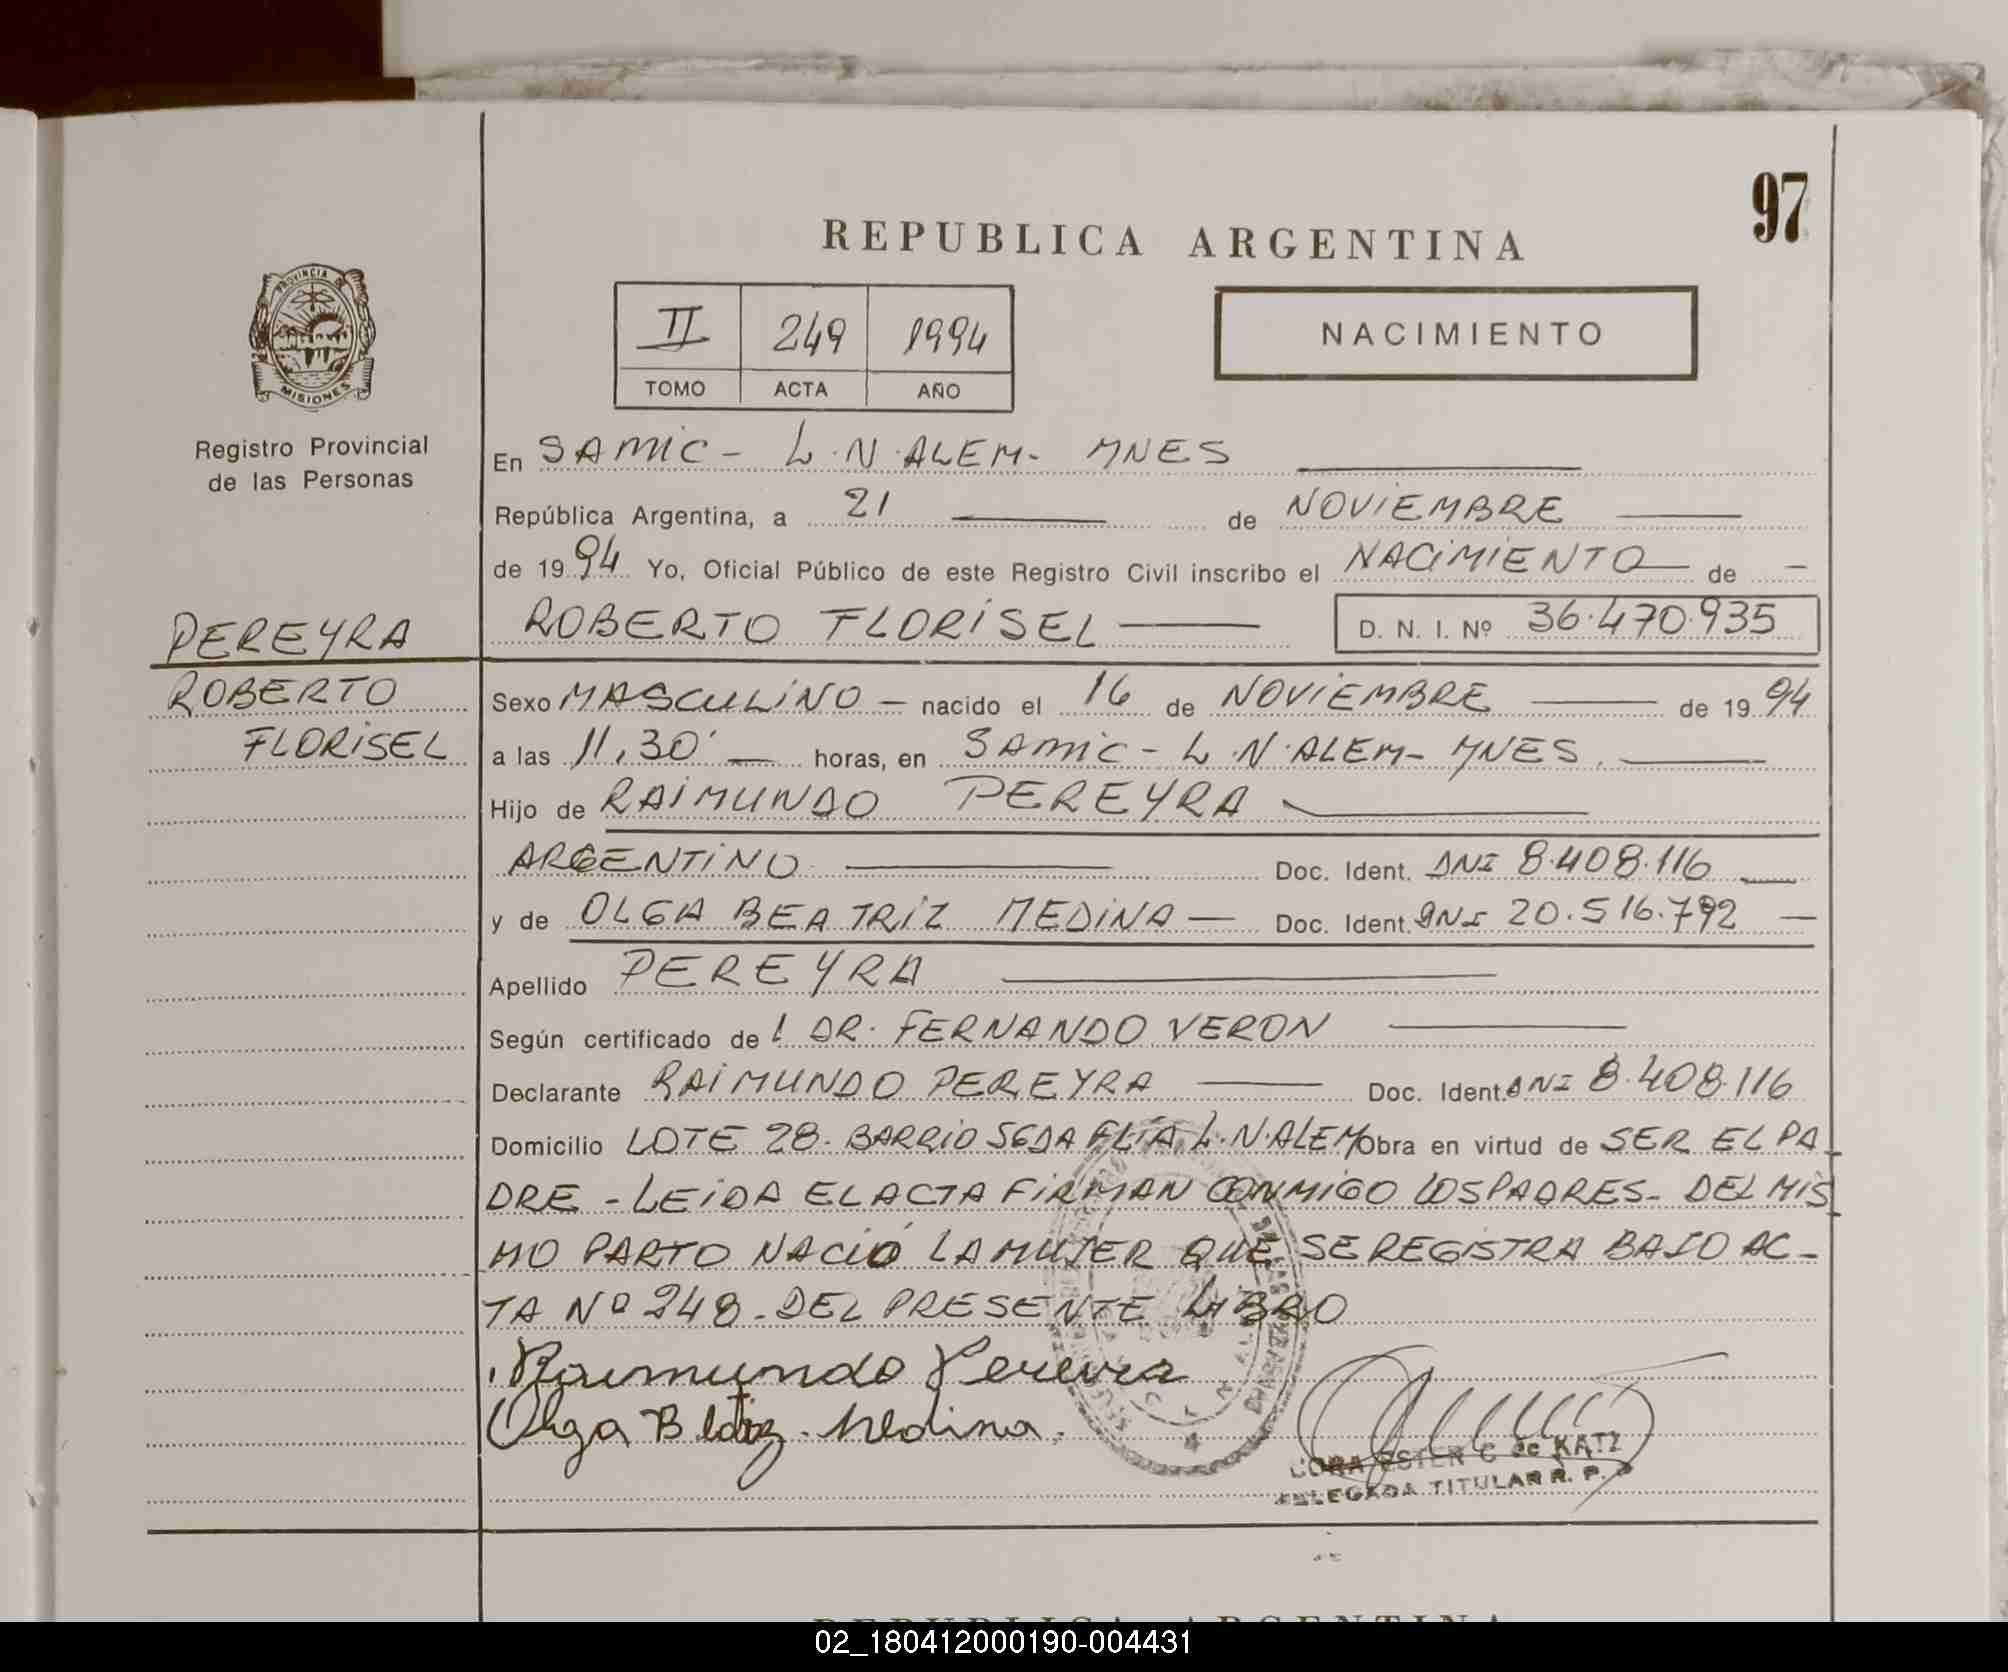 97
REPUBLICA ARGENTINA
PROVINCIA DE
MISIONES
Registro Provincial
de las Personas
II 249 1994
TOMO ACTA AÑO
NACIMIENTO
En SAMIC - L.N.ALEM- MNES
República Argentina, a 21 de NOVIEMBRE
de 1994 Yo, Oficial Público de este Registro Civil inscribo el NACIMIENTO de
ROBERTO FLORISEL D. N. I. Nº 36.470.935
PEREYRA
ROBERTO
FLORISEL
Sexo MASCULINO - nacido el 16 de NOVIEMBRE de 1994
a las 11,30' horas, en SAMIC - L.N.ALEM- MNES.
Hijo de RAIMUNDO PEREYRA
ARGENTINO Doc. Ident. DNI 8.408.116
y de OLGA BEATRIZ MEDINA - Doc. Ident. DNI 20.516.792
Apellido PEREYRA
Según certificado de L DR. FERNANDO VERON
Declarante RAIMUNDO PEREYRA Doc. Ident. DNI 8.408.116
Domicilio LOTE 28. BARRIO SGDA FLIA L.N.ALEM Obra en virtud de SER EL PA
DRE - LEIDA EL ACTA FIRMAN CONMIGO LOS PADRES- DEL MIS
MO PARTO NACIÓ LA MUJER QUE SE REGISTRA BAJO AC-
TA Nº 248- DEL PRESENTE LIBRO
Raimundo Pereyra
Olga Beatriz Medina
ESTER C de KATZ
DELEGADA TITULAR R. P.
REPUBLICA ARGENTINA
02_180412000190-004431